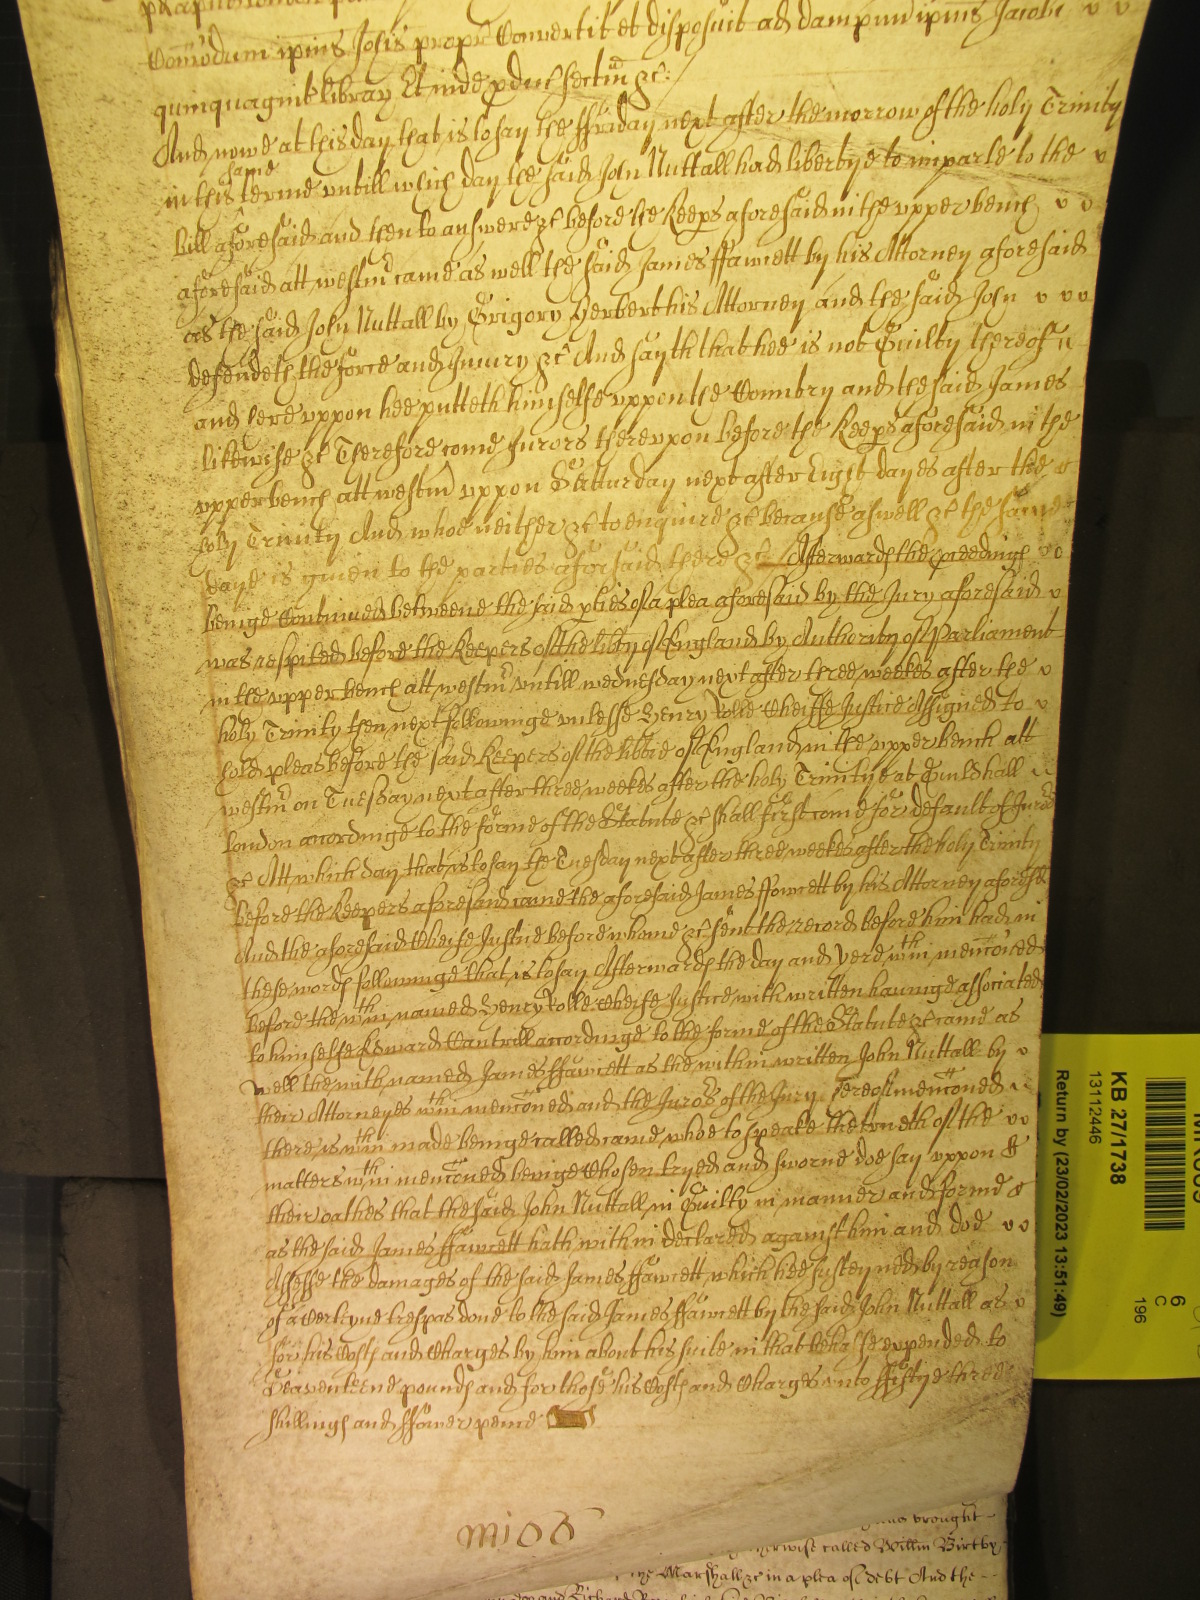 Comodum ipius Johis propr Convertit et disposuit ad dampnu ipius Jacobi
quinquagint librar Et inde pduc sectm &c:
And nowe at this day that is to say the ffriday next after the morrow of the holy Trinity
in this same terme untill which day the said John Nuttall had libertye to imparle to the
bill aforesaid and then to answere &c before the Keeps aforesaid in the upper bench
aforesaid att westmr came as well the said James ffawcett by his Attorney aforesaid
as the said John Nuttall by Grigory Herbert his Attorney and the said John
defendeth the force and Iniury &c And sayth that hee is not Guilty thereof
and hereuppon hee putteth himselfe uppon the Countrey and the said James
likewise &c Therefore come Jurors thereuppon before the Keeps aforesaid in the
upper bench att westmr uppon Satturday next after Eight dayes after the
holy Trinity And whoe neither &c to enquire &c because aswell &c the same
daye is given to the parties aforesaid there &c Afterwards the pceedings
beinge Continued betweene the said pties of a plea aforesaid by the Jury aforesaid
was respited before the Keepers of the libty of England by Authority of Parliament
in the upper bench att westmr untill wednesday next after three weekes after the
holy Trinity then next followinge unlesse Henry Rolle Cheiffe Justice Assigned to
hold pleas before the said Keepers of the libtie of England in the upper bench att
westmr on Tuesday next after three weekes after the holy Trinitye at Guildhall
London accordinge to the forme of the Statute &c shall first come for default of Jurors
&c Att which day that is to say the Tuesday next after three weekes after the holy Trinity
before the Keepers aforesaid came the aforesaid James ffawcett by his Attorney aforesd
And the aforesaid Cheife Justice before whome &c sent there record before him had in
these words followinge that is to say Afterwards the day and yere wthin menconed
before the wthin named Henry Rolle Cheife Justice with written haveinge associated
to himselfe Edward Cantrell accordinge to the forme of the Statute &c came as
well the within named James ffawcett as the within written John Nuttall by
their Attorneyes wthin menconed and the Jurors of the Jury hereof menconed
there is wthin made beinge called came whoe to speake the trueth of the
matters wthin menconed beinge Chosen tryed and sworne doe say uppon
their oathes that the said John Nuttall in Guilty in manner and forme
as the said James ffawcett hath within declared against him and doe
Assesse the damages of the said James ffawcett which hee susteyned by reason
of the trespas done to the said James ffawcett by the said John Nuttall as
for his Costs and Charges by him about his suite in that behalfe expended to
Seaventeene pounds and for those his Costs and Charges unto ffiftye three
shillings and ffower pence
KB 27/1738
13112446
Return by (23/02/2023 13:51:49)
6
C
196
wrought
otherwise called Willm Birtby
the Marshall &c in a plea of debt And the
and Richard